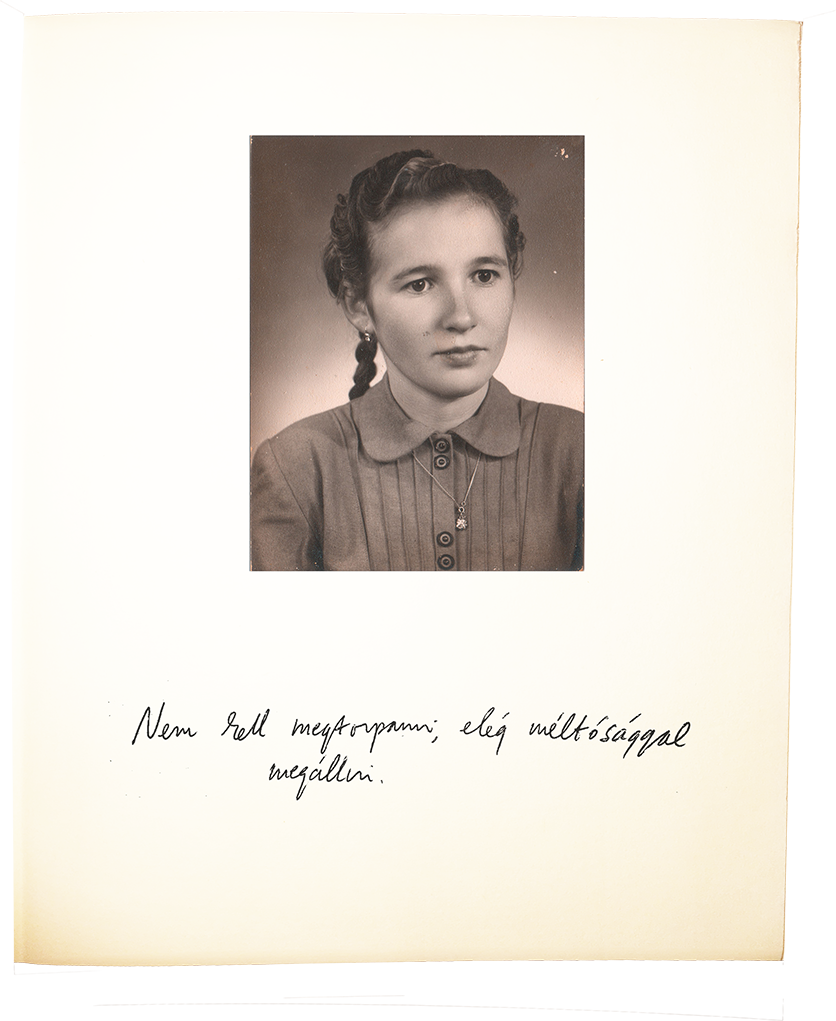 Nem kell megtorpanni, elég méltósággal
megállni.